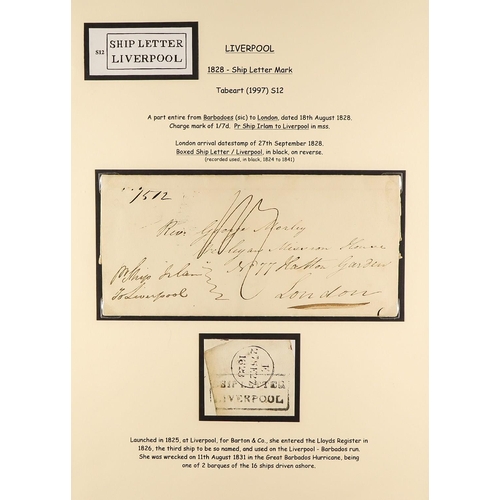 S12
SHIP LETTER
LIVERPOOL
LIVERPOOL
1828 - Ship Letter Mark
Tabeart (1997) S12
A part entire from Barbadoes (sic) to London, dated 18th August 1828.
Charge mark of 1/7d. Pr Ship Irlam to Liverpool in mss.
London arrival datestamp of 27th September 1828.
Boxed Ship Letter / Liverpool, in black, on reverse.
(recorded used, in black, 1824 to 1841)
Revd George Morley
Wesleyan Mission House
No 77 Hatton Garden
London
pr Ship Irlam
To Liverpool
1828
SHIP LETTER
LIVERPOOL
Launched in 1825, at Liverpool, for Barton & Co., she entered the Lloyds Register in
1826, the third ship to be so named, and used on the Liverpool - Barbados run.
She was wrecked on 11th August 1831 in the Great Barbados Hurricane, being
one of 2 barques of the 16 ships driven ashore.